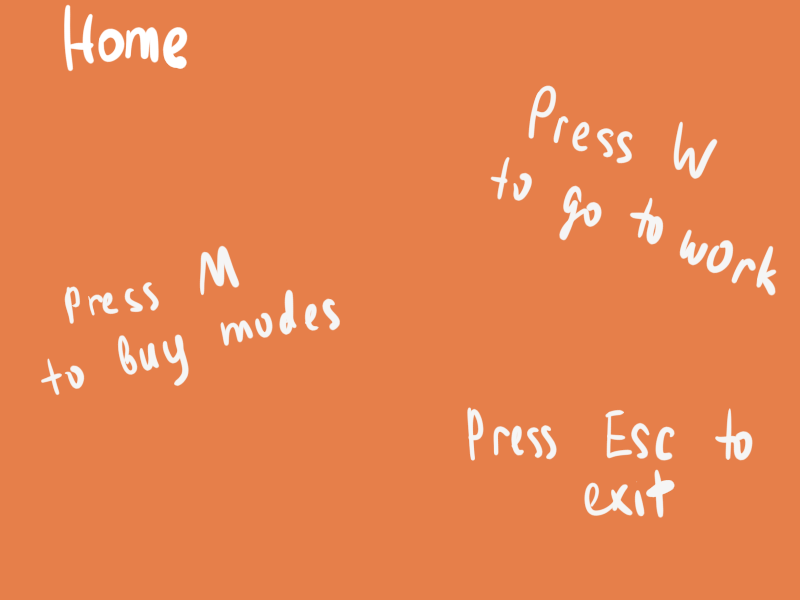 Home
Press W
to go to work
Press M
to buy modes
Press Esc to
exit